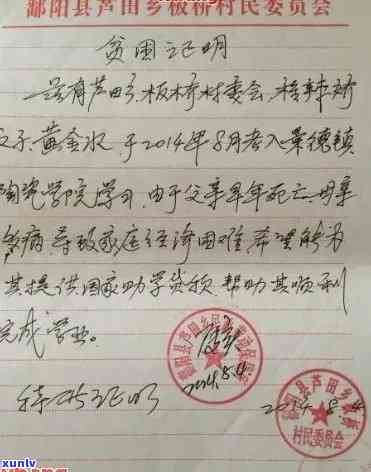 鄱阳县芦田乡板桥村民委员会
贫困证明
兹有芦田乡板桥村委会
之子黄金水,于2014年8月考入景德镇
陶瓷学院学习,由于父亲早年死亡,母亲
病,导致家庭经济困难,希望能为
其提供国家助学贷款,帮助其顺利
完成学业。
2014.8.4
特此证明
2014.8.4
村民委员会
xunlv